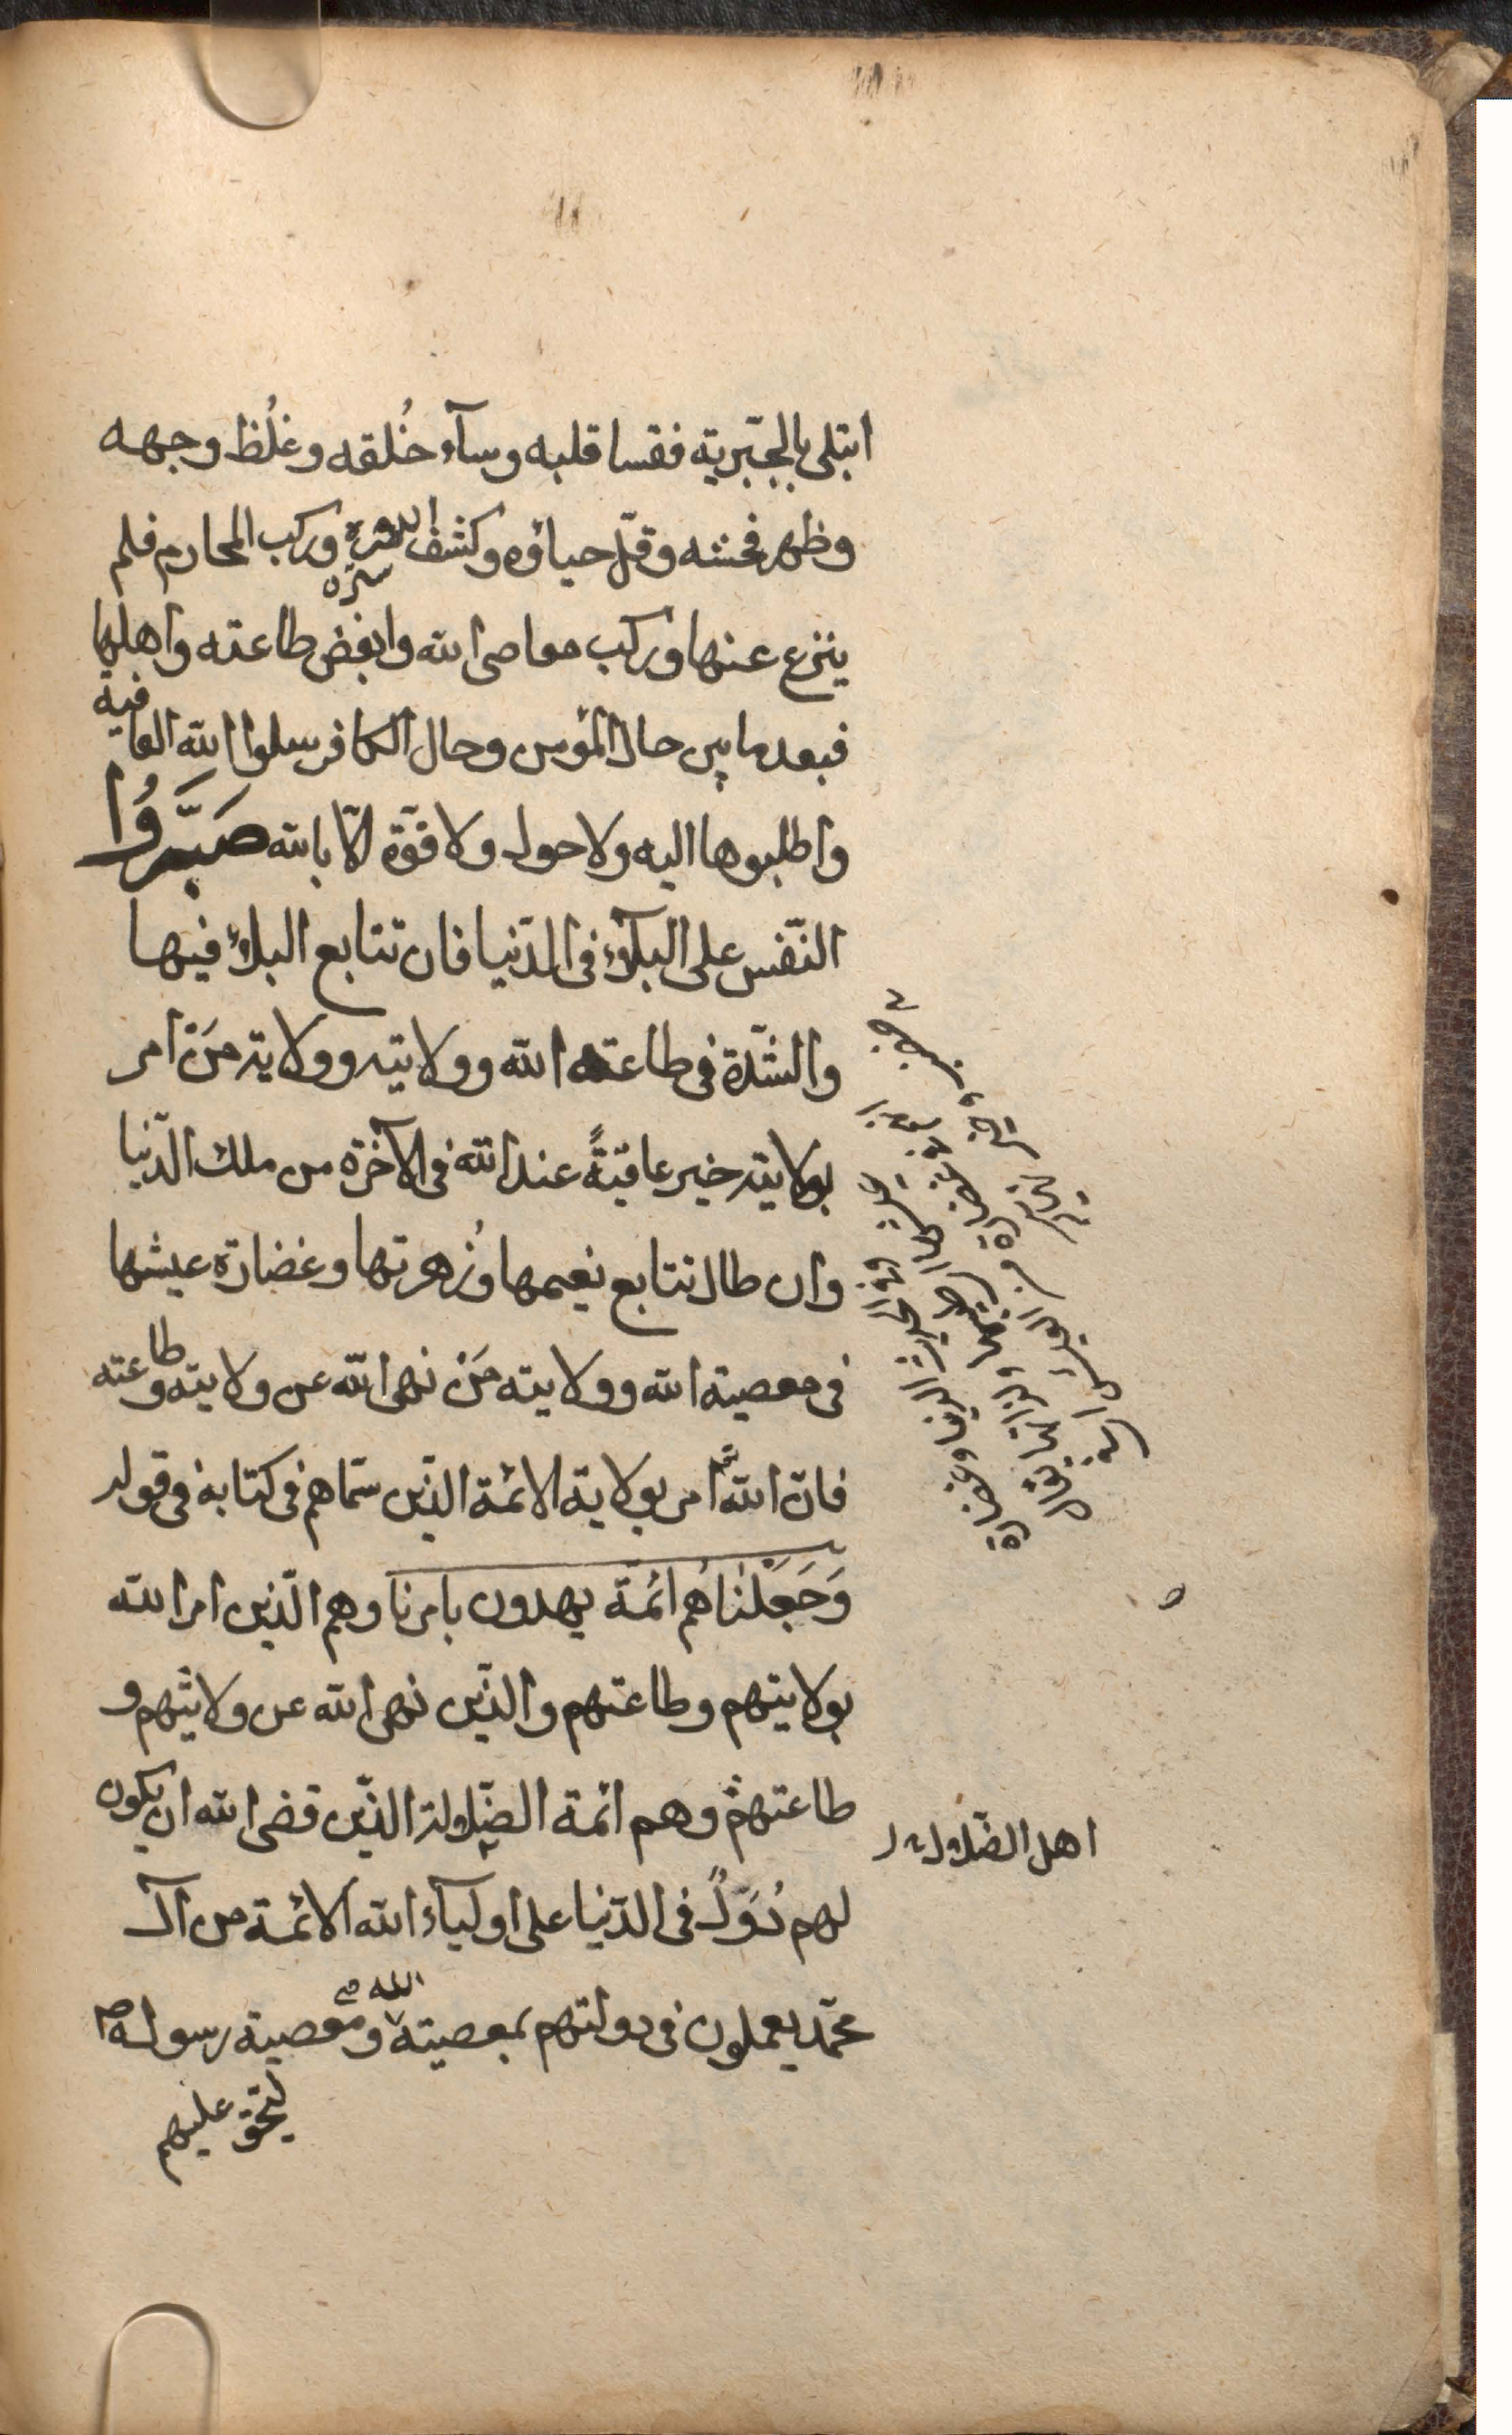 ابتلى بالجبّرية فقسا قلبه وسآء خُلقه وغلُظ وجهه
وظهر فحشه وقلّ حياؤه وكشف الله ستره وركب المحارم فلم
ستره
ينزع عنها وركب معاصى الله وابغض طاعته واهلها
فبعد ما بين حال المؤمن وحال الكافر سلوا الله العافية
واطلبوها اليه ولا حول ولا قوّة الّا بالله صَبَّرُوا
النّفس على البلآء فى الدّنيا فان تتابع البلاء فيها
والشّدّة فى طاعته الله وولايته وولاية مَنْ امر
بولايته خير عاقبةً عند الله فى الآخرة من ملك الدّنيا
وان طال تتابع نعيمها وزُهرتها وغضارة عيشها
فى معصية الله وولايته مَنْ نهى الله عن ولايته وطاعته
فان الله امر بولاية الائمة الذّين سمّاهم فى كتابه فى قوله
وَجَعَلْنٰاهُم ائمّة يهدون بامرنا وهم الّذين امر الله
بولايتهم وطاعتهم والذّين نهى الله عن ولايتهم و
طاعتهم وهم ائمة الضّلالة الذّين قضى الله ان يكون
اهل الضلالة
لهم دُوَلٌ فى الدّنيا على اوليآء الله الائمة من آل
محمّد يعملون فى دولتهم بمعصيته الله ومعصية رسوله ص
ليحق عليهم